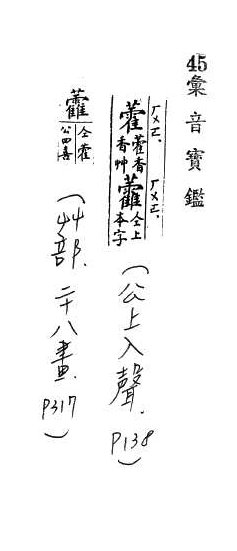 45彙音寶鑑
ㄏㄨㄛˋ ㄏㄨㄛˋ
藿藿香香艸 藿仝上本字
(公上入聲. P138)
藿仝藿公四喜
(艸部. 二十八畫. P317)